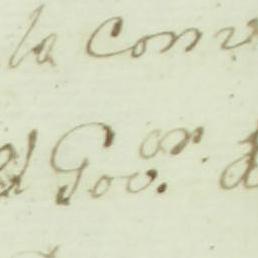 la conv
el Gov.or d